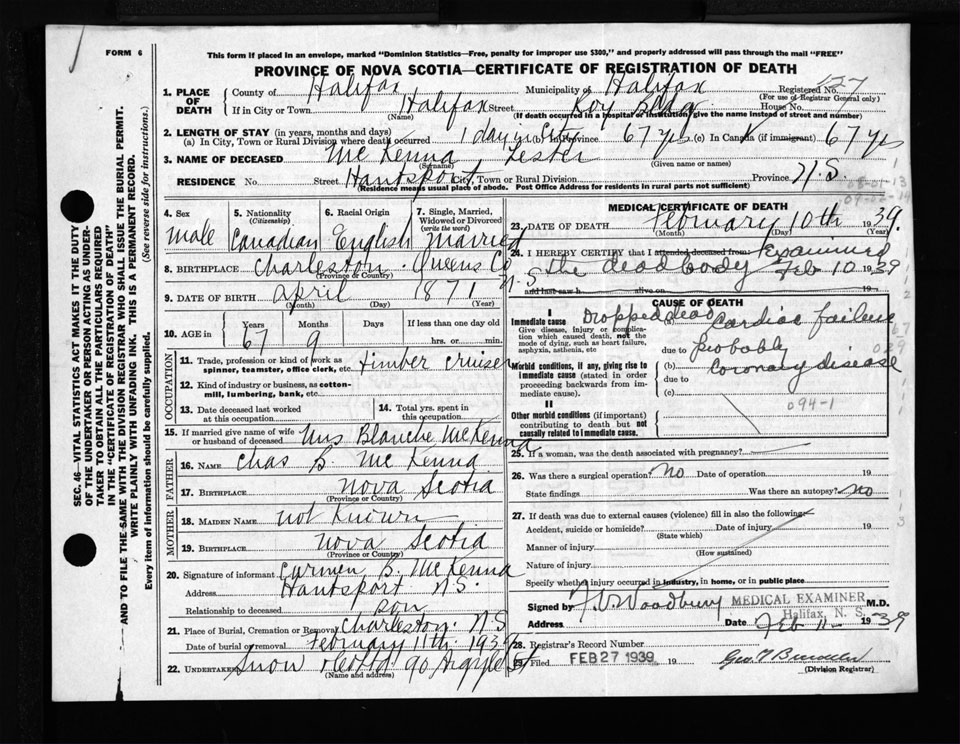 FORM 6
This form if placed in an envelope, marked "Dominion Statistics—Free, penalty for improper use $300," and properly addressed will pass through the mail "FREE"
PROVINCE OF NOVA SCOTIA—CERTIFICATE OF REGISTRATION OF DEATH
SEC. 46—VITAL STATISTICS ACT MAKES IT THE DUTY
OF THE UNDERTAKER OR PERSON ACTING AS UNDER-
TAKER TO OBTAIN ALL THE PARTICULARS REQUIRED
IN THE "CERTIFICATE OF REGISTRATION OF DEATH"
AND TO FILE THE SAME WITH THE DIVISION REGISTRAR WHO SHALL ISSUE THE BURIAL PERMIT.
WRITE PLAINLY WITH UNFADING INK. THIS IS A PERMANENT RECORD.
Every item of information should be carefully supplied. (See reverse side for instructions.)
1. PLACE OF DEATH County of Halifax Municipality of Halifax Registered No. 427
(For use of Registrar General only)
If in City or Town Halifax Street Roy Bldg House No.
(Name) (If death occurred in a hospital or institution, give the name instead of street and number)
2. LENGTH OF STAY (in years, months and days)
(a) In City, Town or Rural Division where death occurred 1 day in City (b) in Province 67 yrs (c) In Canada (if immigrant) 67 yrs
3. NAME OF DECEASED McKenna Lester
(Surname) (Given name or names)
RESIDENCE No. Street Hantsport City, Town or Rural Division Province N.S.
(Residence means usual place of abode. Post Office Address for residents in rural parts not sufficient)
4. Sex 5. Nationality (Citizenship) 6. Racial Origin 7. Single, Married, Widowed or Divorced (write the word)
Male Canadian English Married
8. BIRTHPLACE Charleston Queens Co N.S.
(Province or Country)
9. DATE OF BIRTH April 1871
(Month) (Day) (Year)
10. AGE in Years Months Days If less than one day old
67 9 hrs. or min.
OCCUPATION
11. Trade, profession or kind of work as spinner, teamster, office clerk, etc. timber cruiser
12. Kind of industry or business, as cotton-mill, lumbering, bank, etc.
13. Date deceased last worked at this occupation
14. Total yrs. spent in this occupation
15. If married give name of wife or husband of deceased Mrs Blanche McKenna
FATHER
16. NAME Chas B. McKenna
17. BIRTHPLACE Nova Scotia
(Province or Country)
MOTHER
18. MAIDEN NAME not known
19. BIRTHPLACE Nova Scotia
(Province or Country)
20. Signature of informant Carmen B. McKenna
Address Hantsport N.S.
Relationship to deceased son
21. Place of Burial, Cremation or Removal Charleston N.S
Date of burial or removal February 11th 1939
22. UNDERTAKER Snow & Co Ltd 90 Argyle St
(Name and address)
MEDICAL CERTIFICATE OF DEATH
23. DATE OF DEATH February 10th 1939.
(Month) (Day) (Year)
24. I HEREBY CERTIFY that I attended deceased from: Examined
the dead body Feb 10 1939
and last saw h alive on 19
CAUSE OF DEATH
I
Immediate cause Dropped dead
Give disease, injury or complication which caused death, not the mode of dying, such as heart failure, asphyxia, asthenia, etc
(a) Cardiac failure
due to probably
Morbid conditions, if any, giving rise to immediate cause (stated in order proceeding backwards from immediate cause).
(b) Coronary disease
due to
(c)
II
094-1
Other morbid conditions (if important) contributing to death but not causally related to immediate cause.
25. If a woman, was the death associated with pregnancy?
26. Was there a surgical operation? No Date of operation 19
State findings Was there an autopsy? No
27. If death was due to external causes (violence) fill in also the following:
Accident, suicide or homicide? Date of injury 19
(State which)
Manner of injury
(How sustained)
Nature of injury
Specify whether injury occurred in industry, in home, or in public place
Signed by F. V. Woodbury MEDICAL EXAMINER M.D.
Halifax, N. S.
Address Date Feb 11 1939
28. Registrar's Record Number
29. Filed FEB 27 1939 19
(Division Registrar)